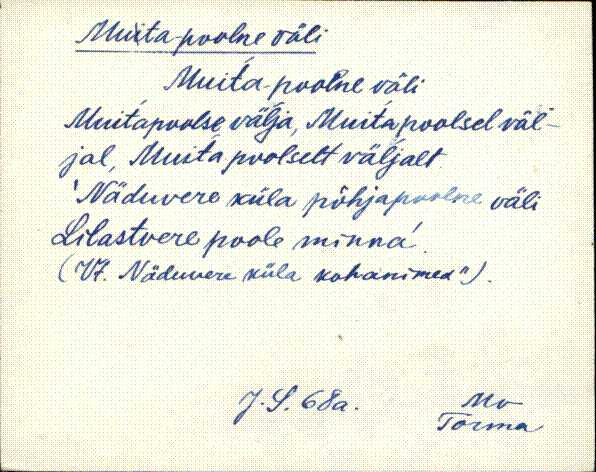 Muita-poolne väli
Muita-poolne väli
Muitapoolse välja, Muita poolsel väl-
jal, Muita poolselt väljalt
'Näduvere küla põhjapoolne väli
Lilastvere poole minna'.
(Vt. Näduvere küla kohanimed").
J. S. 68a.
MV
Torma